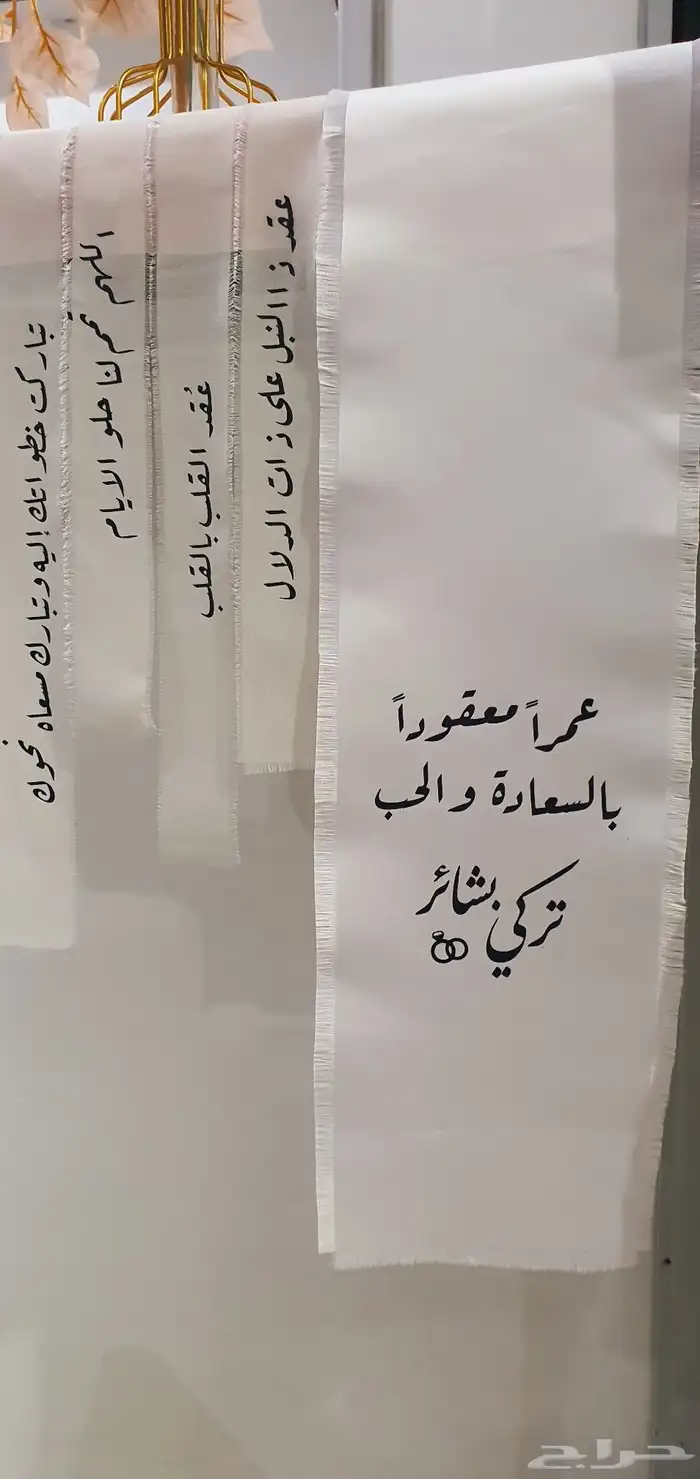 عمراً معقوداً
بالسعادة والحب
تركي بشائر
عقد ذا النبل على ذات الدلال
عُقد القلب بالقلب
اللهم تمم لنا حلو الايام
تباركت خطواتك إليه وتبارك مسعاه نحوك
حراج